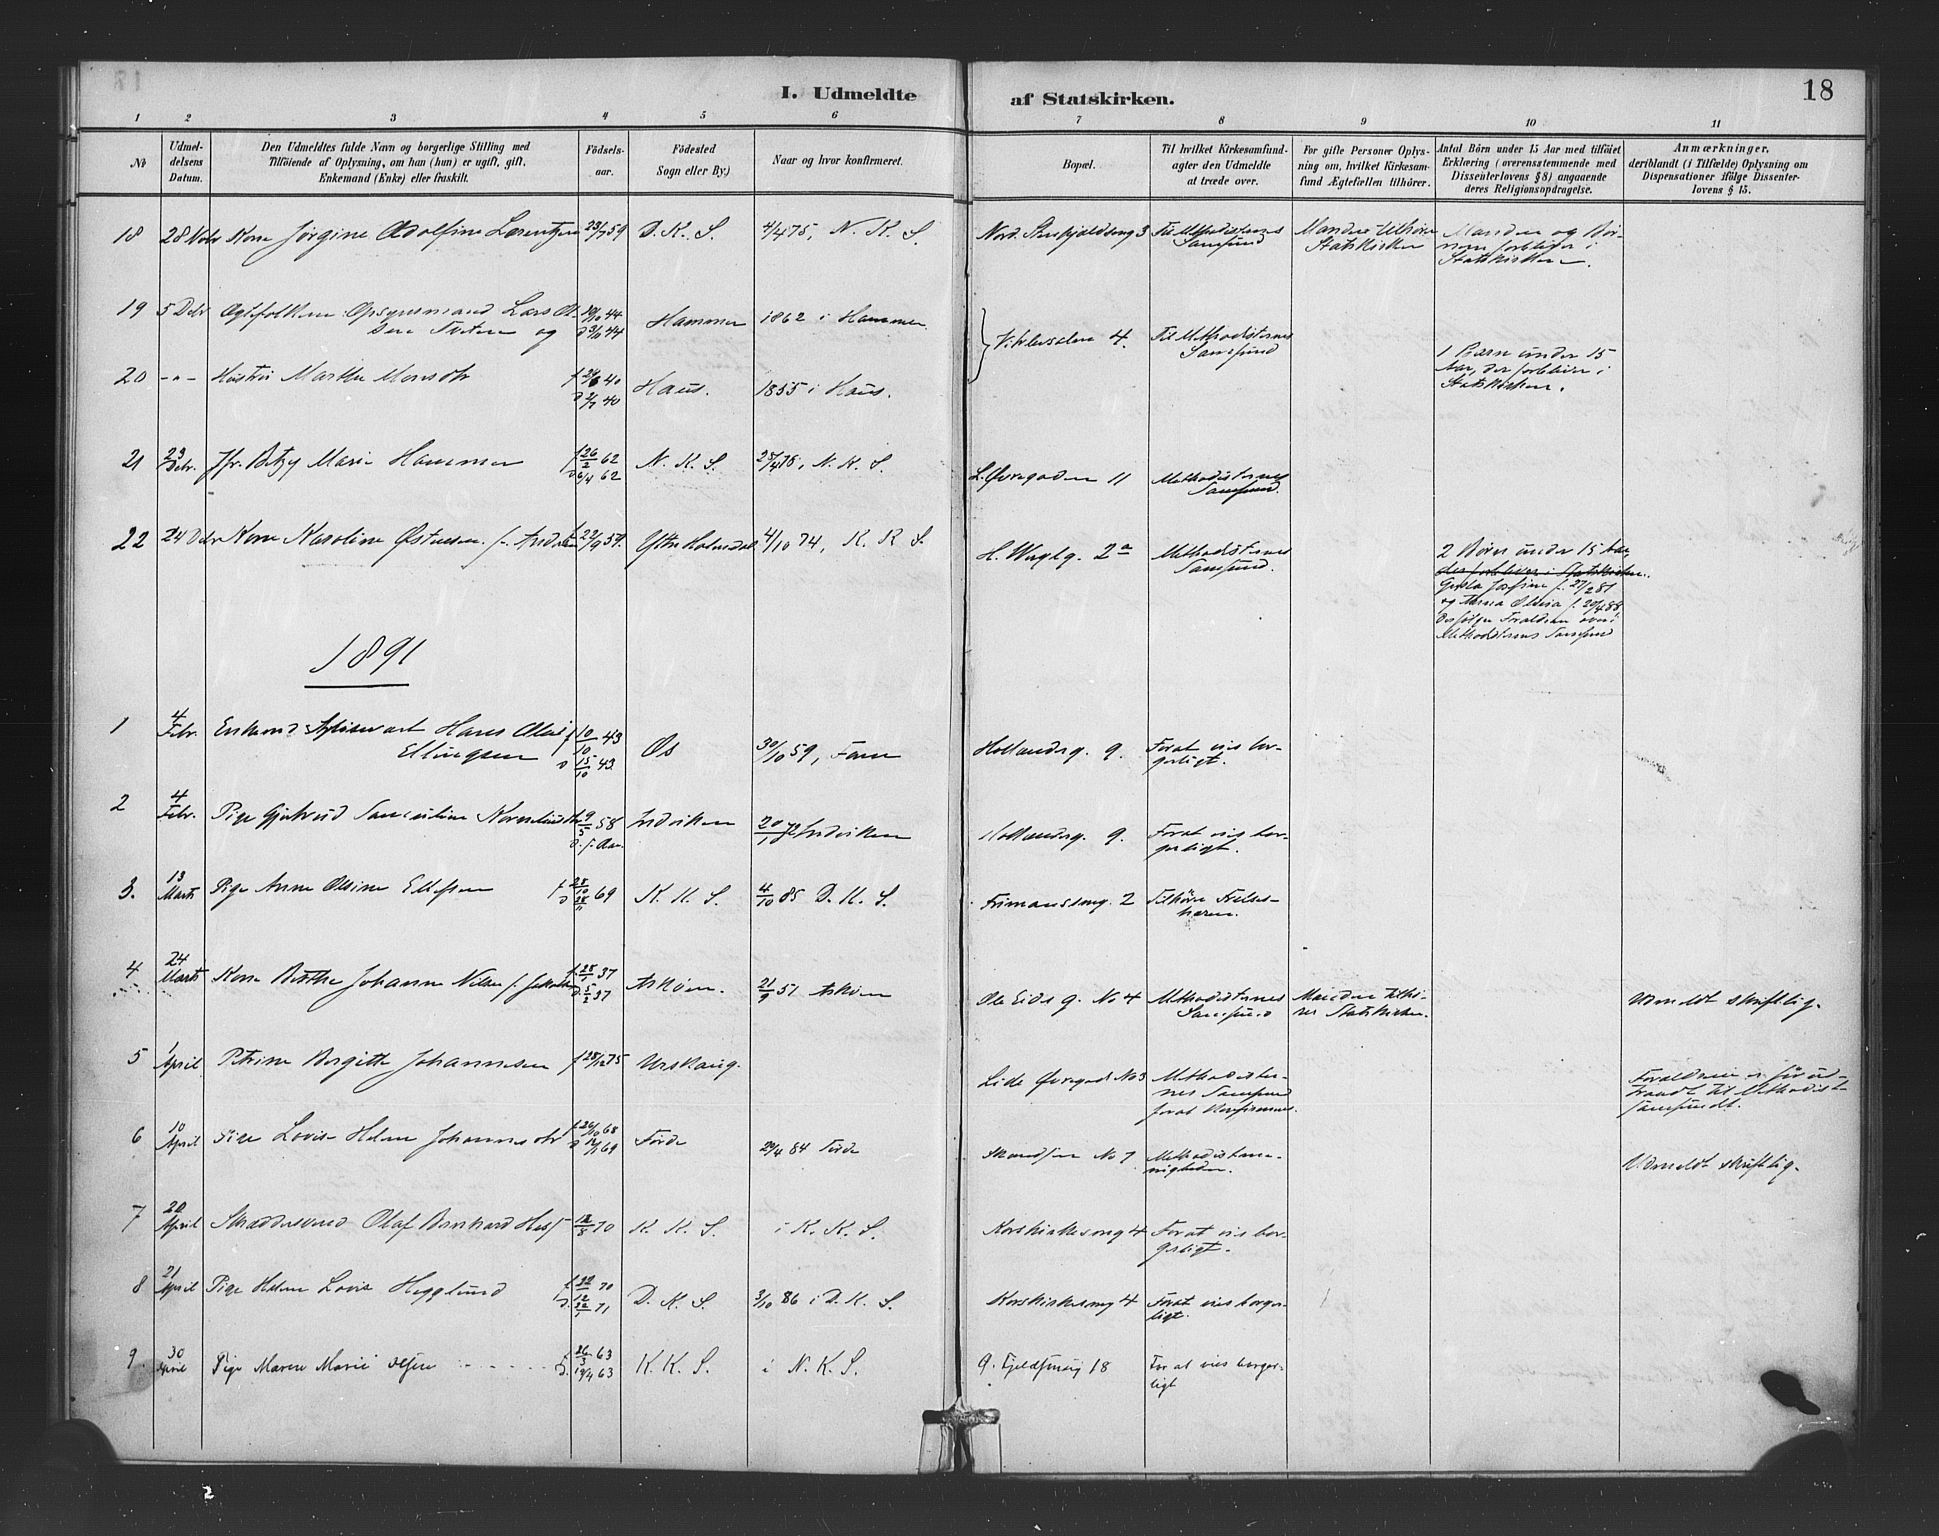 I. Udmeldte
af Statskirken.
18
1 2 3 4 5 6 7 8 9 10 11
No
Udmel-
delsens
Datum.
Den Udmeldtes fulde Navn og borgerlige Stilling med
Tilföiende af Oplysning, om han (hun) er ugift, gift,
Enkemand (Enke) eller fraskilt.
Födsels-
aar.
Födested
Sogn eller By.)
Naar og hvor konfirmeret.
Bopæl.
Til hvilket Kirkesamfund-
agter den Udmeldte
at træde over.
For gifte Personer Oplys-
ning om, hvilket Kirkesam-
fund Ægtefællen tilhörer.
Antal Börn under 15 Aar med tilföiet
Erklæring (overensstemmende med
Dissenterlovens § 8) angaaende
deres Religionsopdragelse.
Anmærkninger,
deriblandt (i Tilfælde) Oplysning om
Dispensationer ifölge Dissenter-
lovens § 15.
18 28 Novbr Kone Jørgine Adolfine Lorentzen 23/7 59 D. K. S. 4/4 75, N. K. S.
Til Methodisternes Manden tilhører Manden og Bør-
Samfund Statskirken nene forbliver i
Statskirken.
19 5 Debr Ægtefolkene: Opsynsmand Lars Ol-
sen Tveten og 44 Hammer 1862 i Hammer
4. Til Methodisternes
Samfund
20 -"- Hustru Marthe Monsdtr 40 Haus. 1855 i Haus.
1 Barn under 15
Aar, der forbliver i
Statskirken.
21 23 Debr. Jfr. Betzy Marie Hammer f 26/2 62 N. K. S. 75, N. K. S.
D 6/4 62
L. Øvregaden 11 Methodisternes
Samfund.
22 24 Debr Kone Karoline Østensen f. 22/9 59. Ytre Holmedal 4/10 74, K. K. S.
2a Methodisternes
Samfund.
2 Børn under 15 Aar,
der forbliver i Statskirken.
Josfine f. 27/2 81
og Anna f. 20/4 88,
Forældrene over i
Methodisternes Samfund
1891
1 4 Febr. Enkemand Hans Olai f 10/10 43
Ellingsen D 15/10 43 Os 30/10 59, Fane
Hollendsg. 9. For at vies bor-
gerligt.
2 4 Febr. Pige Gjertrud 9/5 58 Indviken 20/1 72 Indviken
D. s. Aar.
Hollendsg. 9. For at vies bor-
gerligt.
3. 13 Marts Pige Anne Olsine Ellefsen f 28/10 69 K. K. S. 4/10 85 D. K. S.
2 Tilhøre Frelses-
hæren.
4 24 Marts Kone Berthe Johanne Nilsen f. f. 28/1 37 Askøen. 21/9 51 Askøen
D. 5/2 37
Ole Eids g. No 4 Methodisternes Manden tilhø-
Samfund rer Statskirken.
Udmeldt skriftlig.
5 1 April Petrine Bergitte Johannesen f 28/12 75 Urskaug.
Lide Øvregad No 3 Methodister-
nes Samfund
for at konfirmeres.
Forældrene er før ud-
traadt til Methodist-
samfundt.
6 10 April Pige Lovise Helene Johannesdtr f 26/10 68 Førde 84 Førde
69
No 7 Methodistme-
nigheden.
Udmeldt skriftlig.
7 20 April Skræddersvend Olaf Bernhard 70 K. K. S. i K. K. S.
Korskirkesmug 4 For at vies bor-
gerligt.
8 21 April Pige Helene Lovise Hegglund 70 D. K. S. 3/10 86 i D. K. S.
71
Korskirkesmug 4 For at vies borger-
ligt.
9. 30 April Pige Maren Marie Olsen f. 26/3 63 K. K. S. i N. K. S.
D. 19/4 63
18 For at vies borger-
ligt